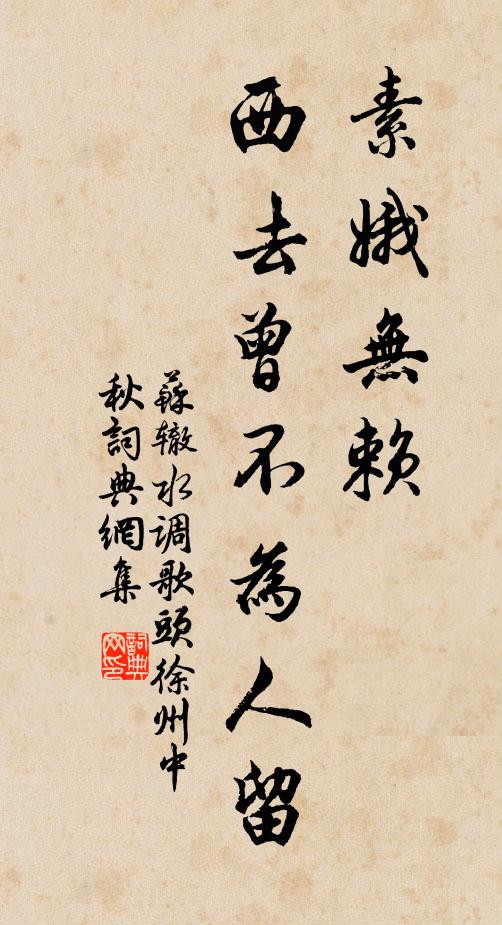 素娥無賴
西去曾不為人留
蘇辙水调歌頭徐州中
秋詞典網集
詞典網印